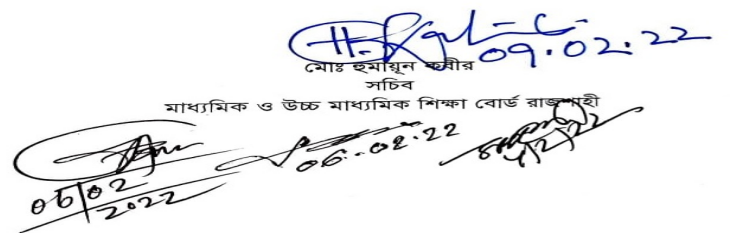 09.02.22
মোঃ হুমায়ূন কবীর
সচিব
মাধ্যমিক ও উচ্চ মাধ্যমিক শিক্ষা বোর্ড রাজশাহী
06.02.22
06/02
2022